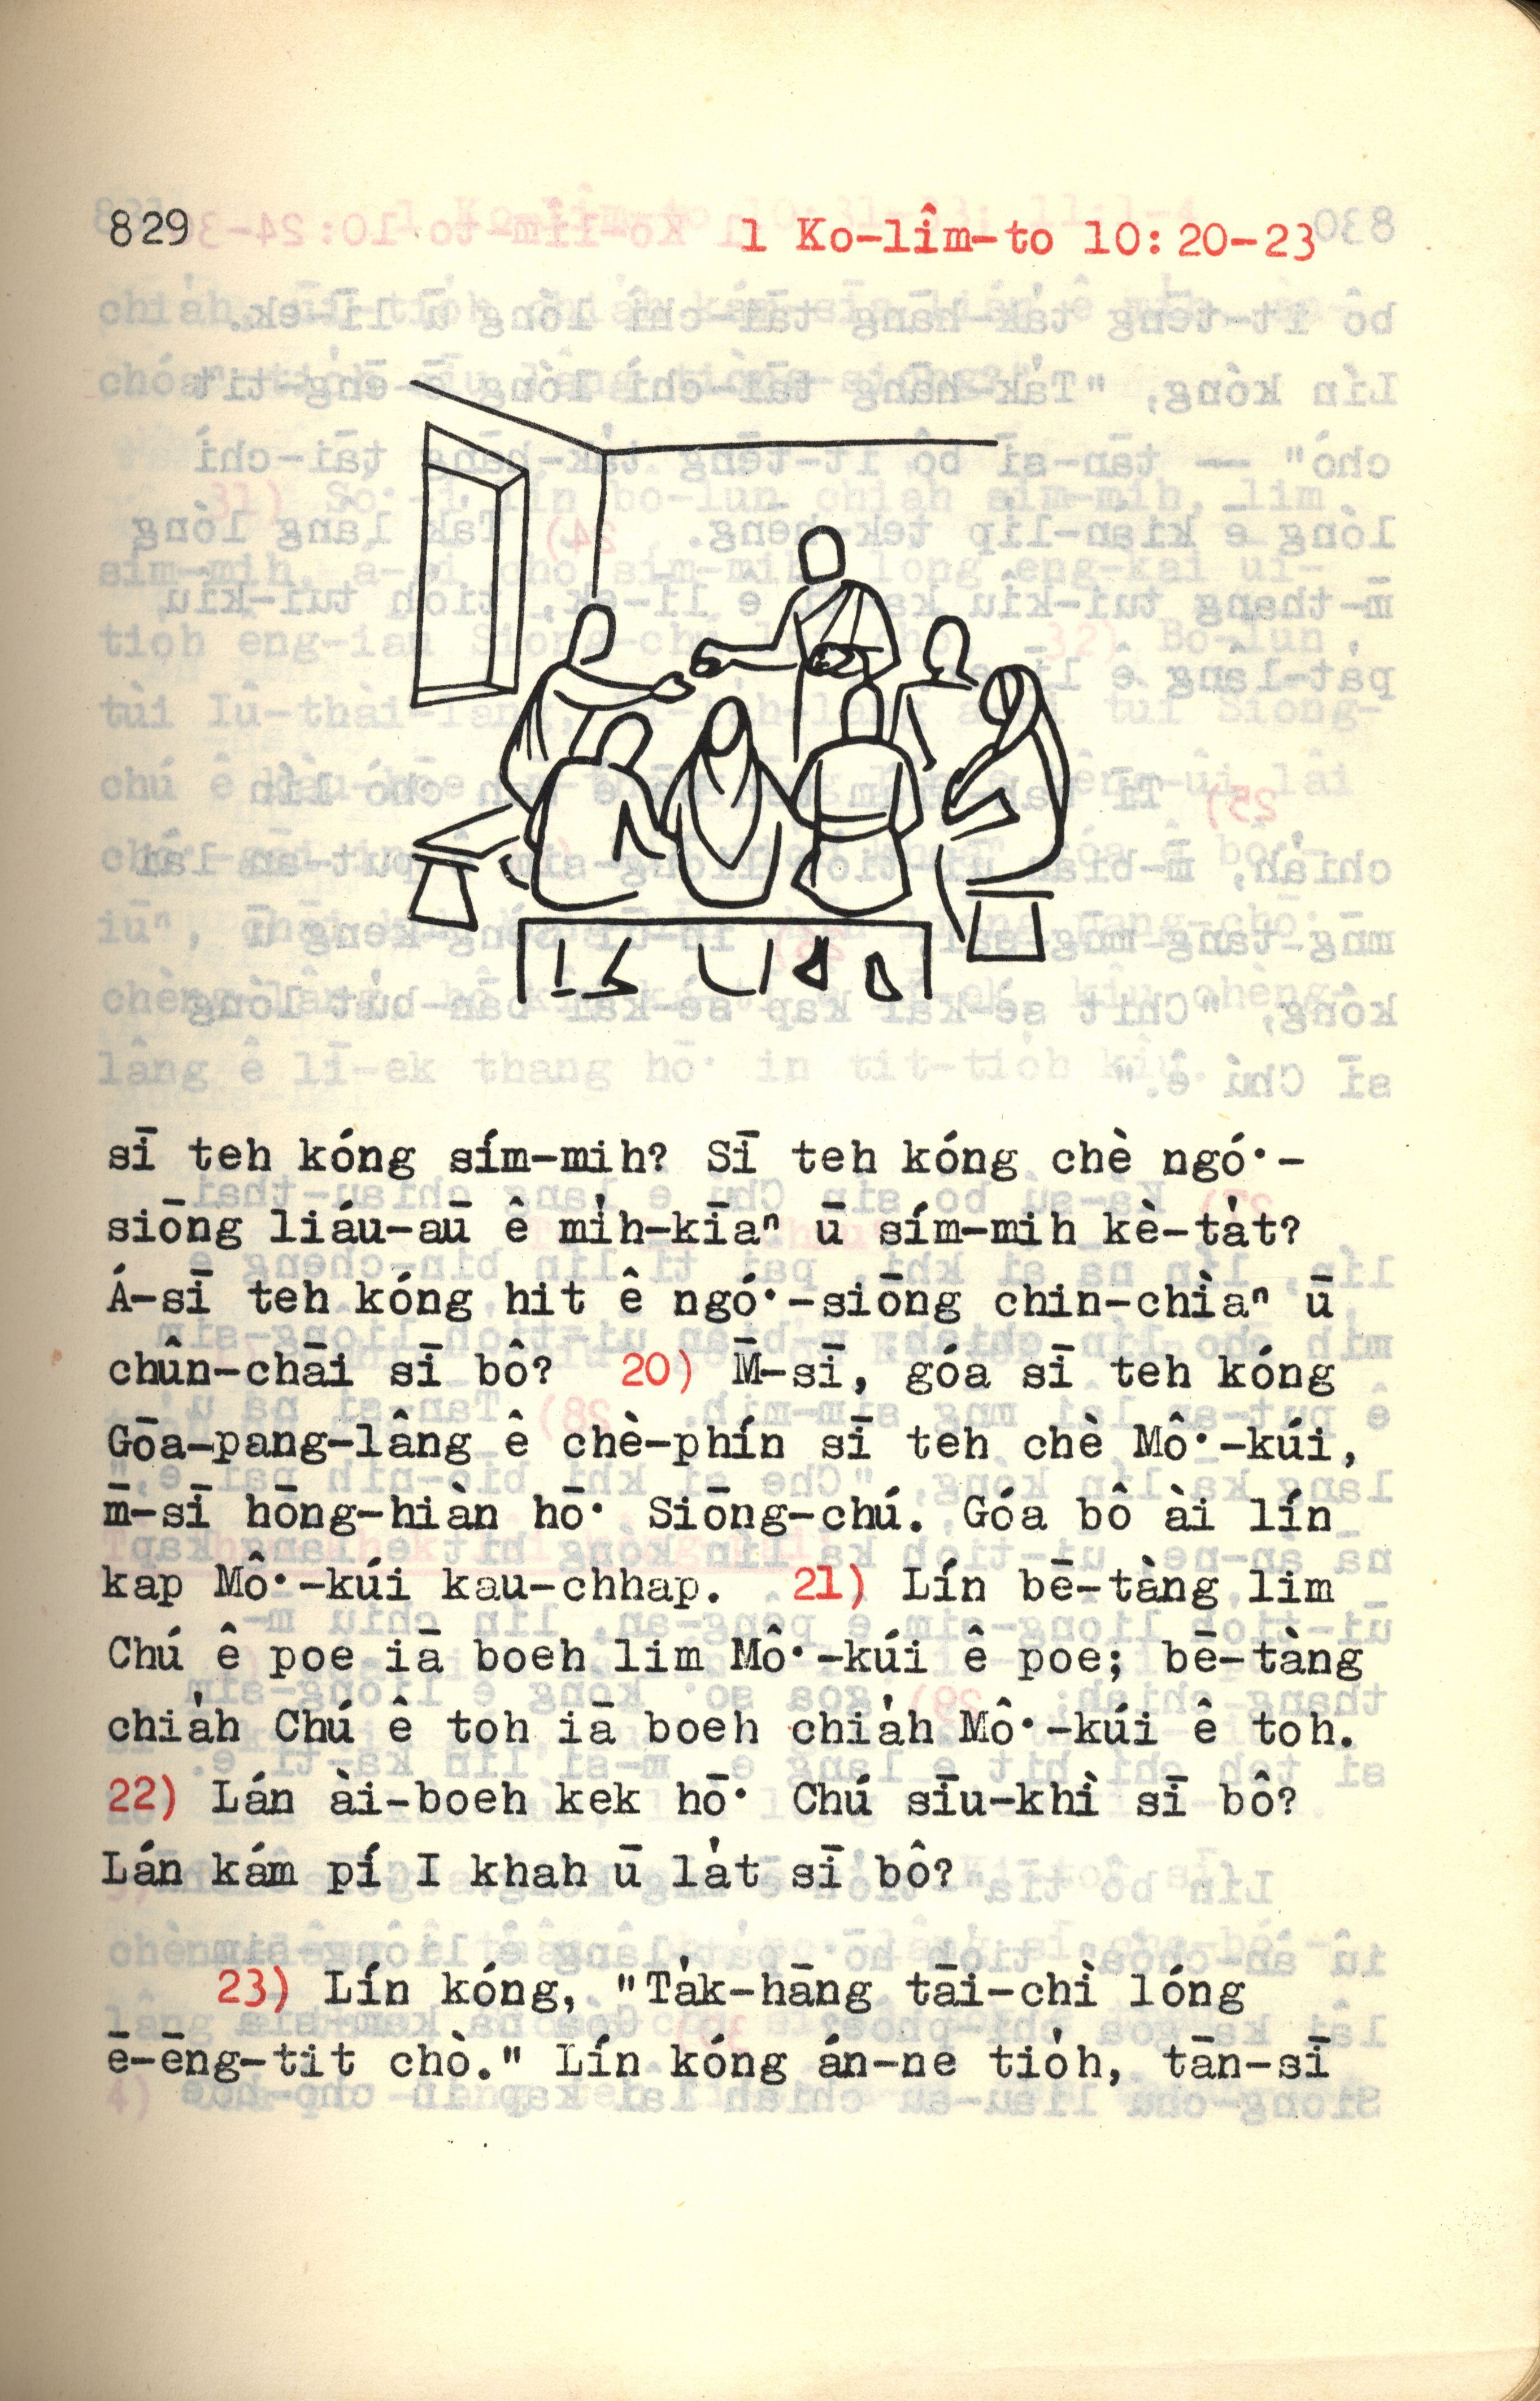 829
1 Ko-lîm-to 10:20-23
sī teh kóng sím-mih? Sī teh kóng chè ngó͘-
siōng liáu-āu ê mi̍h-kīaⁿ ū sím-mih kè-ta̍t?
Á-sī teh kóng hit ê ngó͘-siōng chin-chìaⁿ ū
chûn-chāi sī bô? 20) M̄-sī, góa sī teh kóng
Gōa-pang-lâng ê chè-phín sī teh chè Mô͘-kúi,
m̄-sī hōng-hiàn hō͘ Siōng-chú. Góa bô ài lín
kap Mô͘-kúi kau-chhap. 21) Lín bē-tàng lim
Chú ê poe iā boeh lim Mô͘-kúi ê poe; bē-tàng
chia̍h Chú ê toh iā boeh chia̍h Mô͘-kúi ê toh.
22) Lán ài-boeh kek hō͘ Chú sīu-khì sī bô?
Lán kám pí I khah ū la̍t sī bô?
23) Lín kóng, "Ta̍k-hāng tāi-chì lóng
ē-ēng-tit chò." Lín kóng án-ne tio̍h, tān-sī